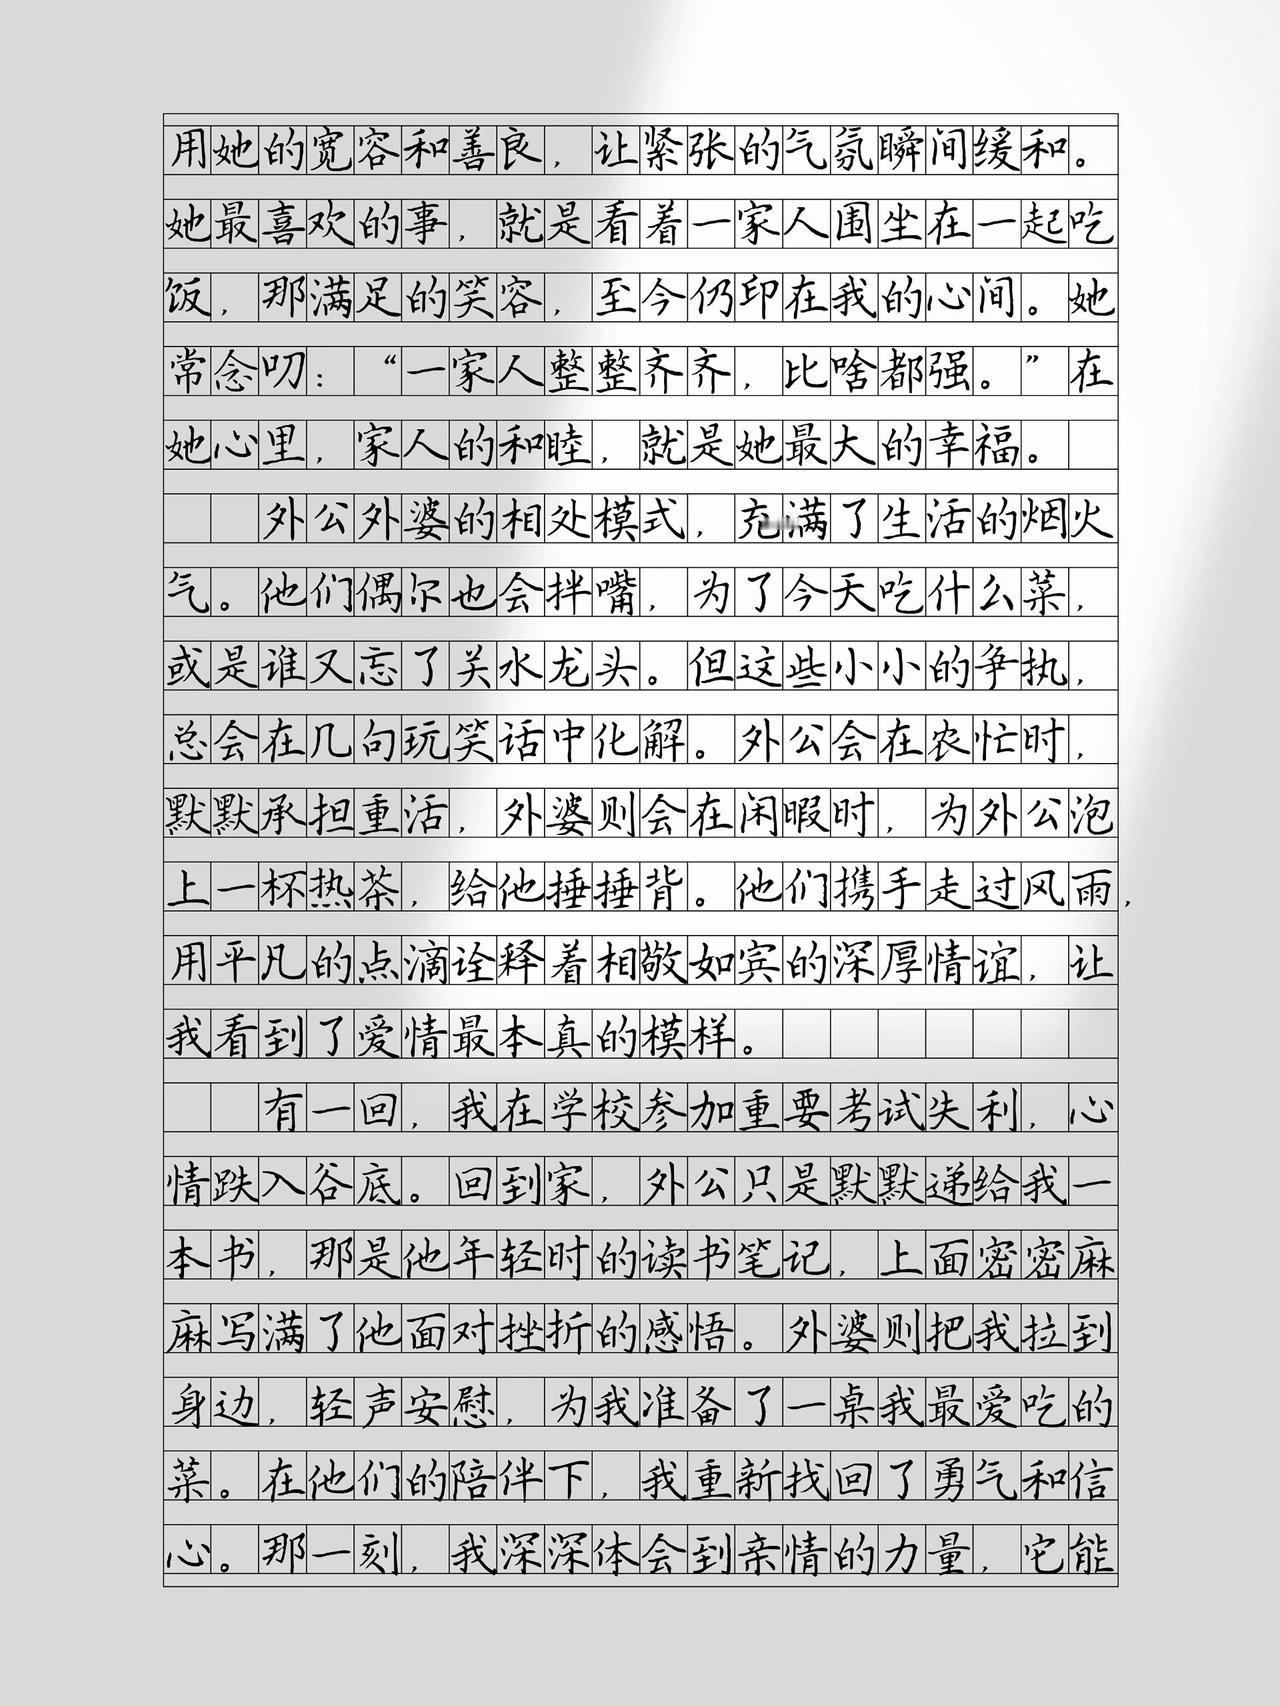 用她的宽容和善良，让紧张的气氛瞬间缓和。
她最喜欢的事，就是看着一家人围坐在一起吃
饭，那满足的笑容，至今仍印在我的心间。她
常念叨：“一家人整整齐齐，比啥都强。”在
她心里，家人的和睦，就是她最大的幸福。
外公外婆的相处模式，充满了生活的烟火
气。他们偶尔也会拌嘴，为了今天吃什么菜，
或是谁又忘了关水龙头。但这些小小的争执，
总会在几句玩笑话中化解。外公会在农忙时，
默默承担重活，外婆则会在闲暇时，为外公泡
上一杯热茶，给他捶捶背。他们携手走过风雨，
用平凡的点滴诠释着相敬如宾的深厚情谊，让
我看到了爱情最本真的模样。
有一回，我在学校参加重要考试失利，心
情跌入谷底。回到家，外公只是默默递给我一
本书，那是他年轻时的读书笔记，上面密密麻
麻写满了他面对挫折的感悟。外婆则把我拉到
身边，轻声安慰，为我准备了一桌我最爱吃的
菜。在他们的陪伴下，我重新找回了勇气和信
心。那一刻，我深深体会到亲情的力量，它能